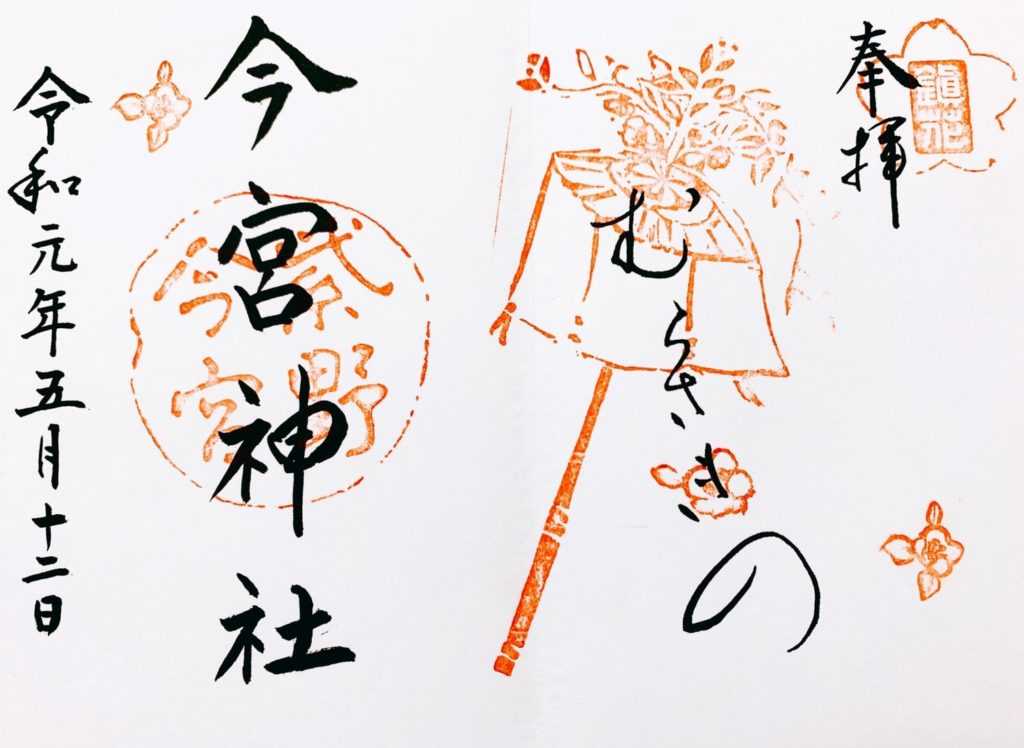 奉拝
鎮花
むらさきの
今宮神社
紫野
今宮
令和元年五月十二日